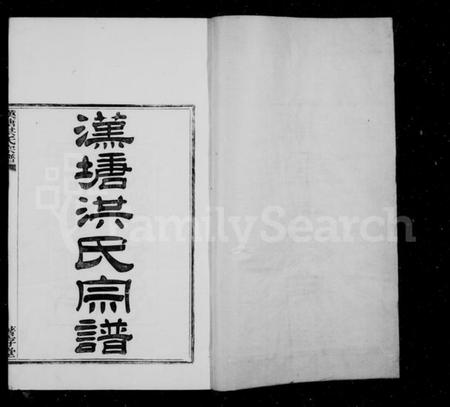 漢塘洪氏宗譜
FamilySearch